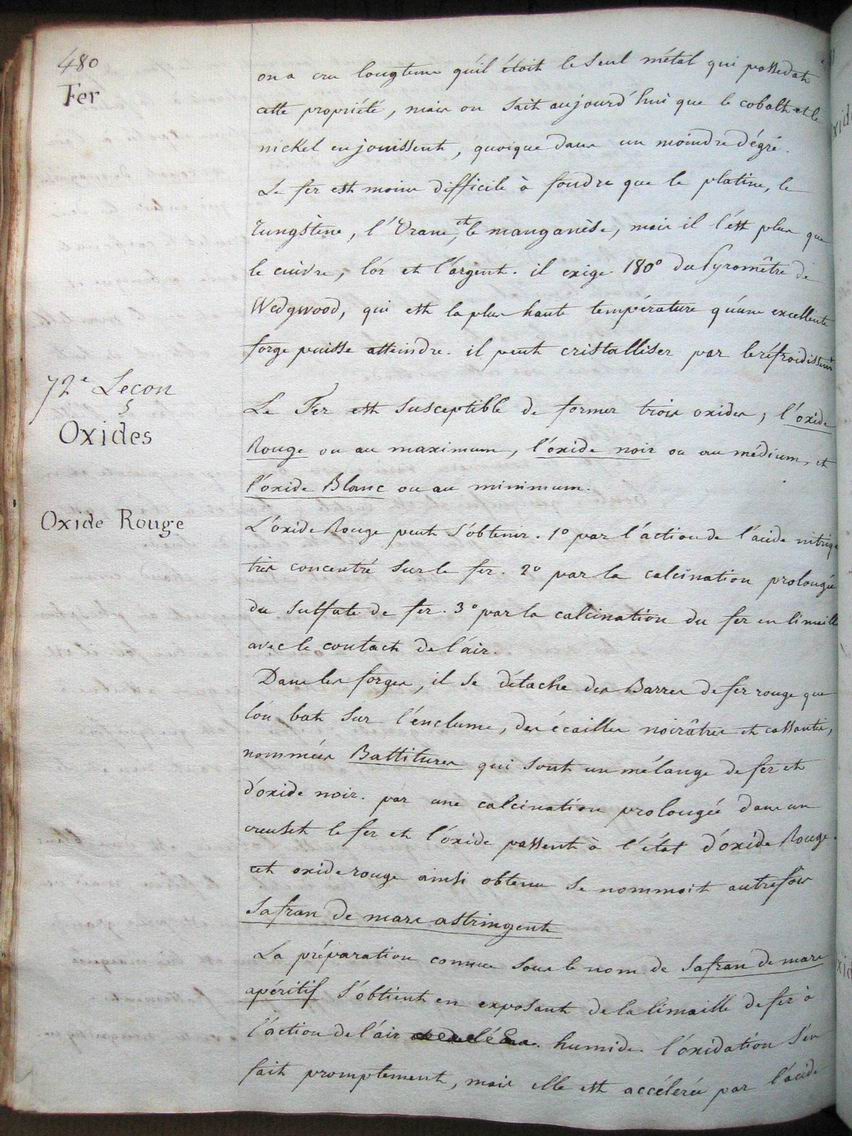 480
Fer
on a cru longtems qu'il étoit le seul métal qui possedat
cette propriété, mais on sait aujourd'hui que le cobalt et le
nickel en jouissent, quoique dans un moindre dégré.
Le fer est moins difficile à fondre que le platine, le
Tungstène, l'Urane, et le manganèse, mais il l'est plus que
le cuivre, l'or et l'argent. il exige 180° du Pyromètre de
Wedgwood, qui est la plus haute température qu'une excellente
forge puisse atteindre. il peut cristalliser par le réfroidissemt
72e Leçon
§
Oxides
Le Fer est susceptible de former trois oxides; l'oxide
Rouge ou au maximum, l'oxide noir ou au médium, et
l'oxide Blanc ou au minimum.
Oxide Rouge
L'oxide Rouge peut s'obtenir. 1° par l'action de l'acide nitrique
très concentré sur le fer. 2° par la calcination prolongée
du sulfate de fer. 3° par la calcination du fer en limaille
avec le contact de l'air
Dans les forges, il se détache des Barres de fer rouge que
l'on bat sur l'enclume, des écailles noirâtres et cassantes,
nommées Battitures qui sont un mélange de fer et
d'oxide noir. par une calcination prolongée dans un
creuset le fer et l'oxide passent à l'état d'oxide Rouge.
cet oxide rouge ainsi obtenu se nommoit autrefois
Safran de mars astringent
La préparation connue sous le nom de Safran de mars
apéritif s'obtient en exposant de la limaille de fer à
l'action de l'air humide. l'oxidation s'en
fait promptement, mais elle est accélérée par l'acide